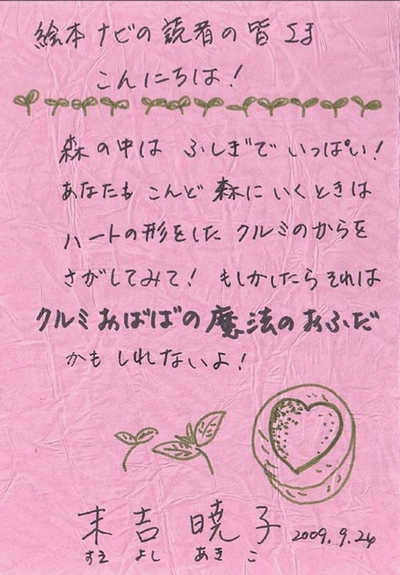 絵本ナビの読者の皆さま
こんにちは!
森の中は ふしぎで いっぱい!
あなたも こんど 森に いくときは
ハートの形をした クルミのからを
さがしてみて! もしかしたら それは
クルミおばばの魔法のおふだ
かも しれないよ!
末吉 暁子 2009.9.24
すえ よし あき こ